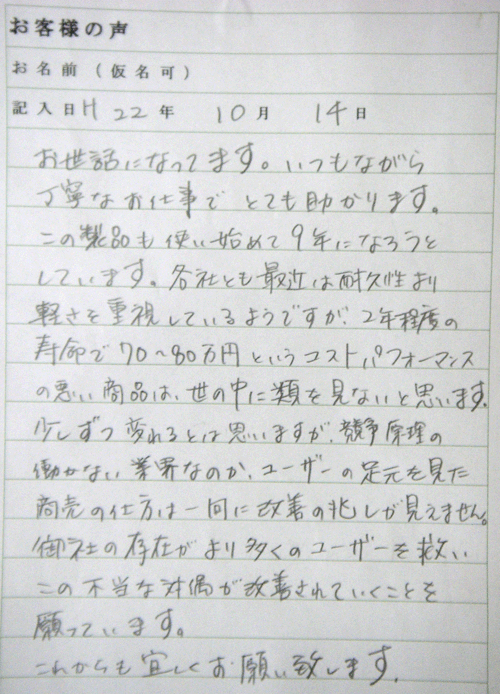 お客様の声
お名前（仮名可）
記入日H22年 10月 14日
お世話になってます。いつもながら
丁寧なお仕事で とても助かります。
この製品も使い始めて9年になろうと
しています。各社とも最近は耐久性より
軽さを重視しているようですが、2年程度の
寿命で70～80万円というコストパフォーマンス
の悪い商品は、世の中に類を見ないと思います。
少しずつ変れるとは思いますが、競争原理の
働かない業界なのか、ユーザーの足元を見た
商売の仕方は一向に改善の兆しが見えません。
御社の存在がより多くのユーザーを救い
この不当な対偶が改善されていくことを
願っています。
これからも宜しくお願い致します。